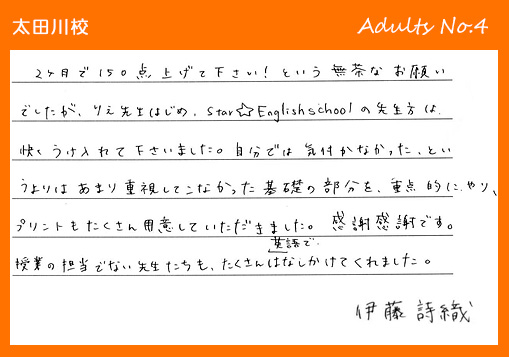 太田川校
Adults No.4
2ヶ月で150点上げて下さい!という無茶なお願い
でしたが、りえ先生はじめ、Star☆Englishschoolの先生方は、
快くうけ入れて下さいました。自分では気付かなかった、とい
うよりはあまり重視してこなかった基礎の部分を、重点的にやり、
プリントもたくさん用意していただきました。感謝感謝です。
英語で
授業の担当でない先生たちも、たくさんはなしかけてくれました。
伊藤詩織